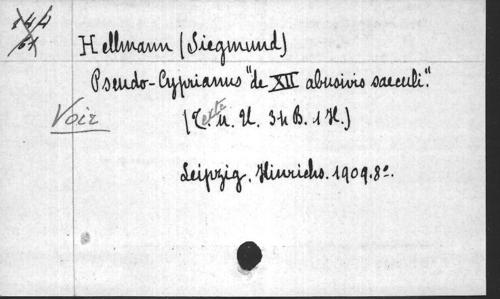 144
61
Hellmann (Siegmund)
Pseudo-Cyprianus "de XII abusivis saeculi".
Voir
(Texte u. U. 34 B. 1 H.)
Leipzig, Hinrichs. 1909. 8º.